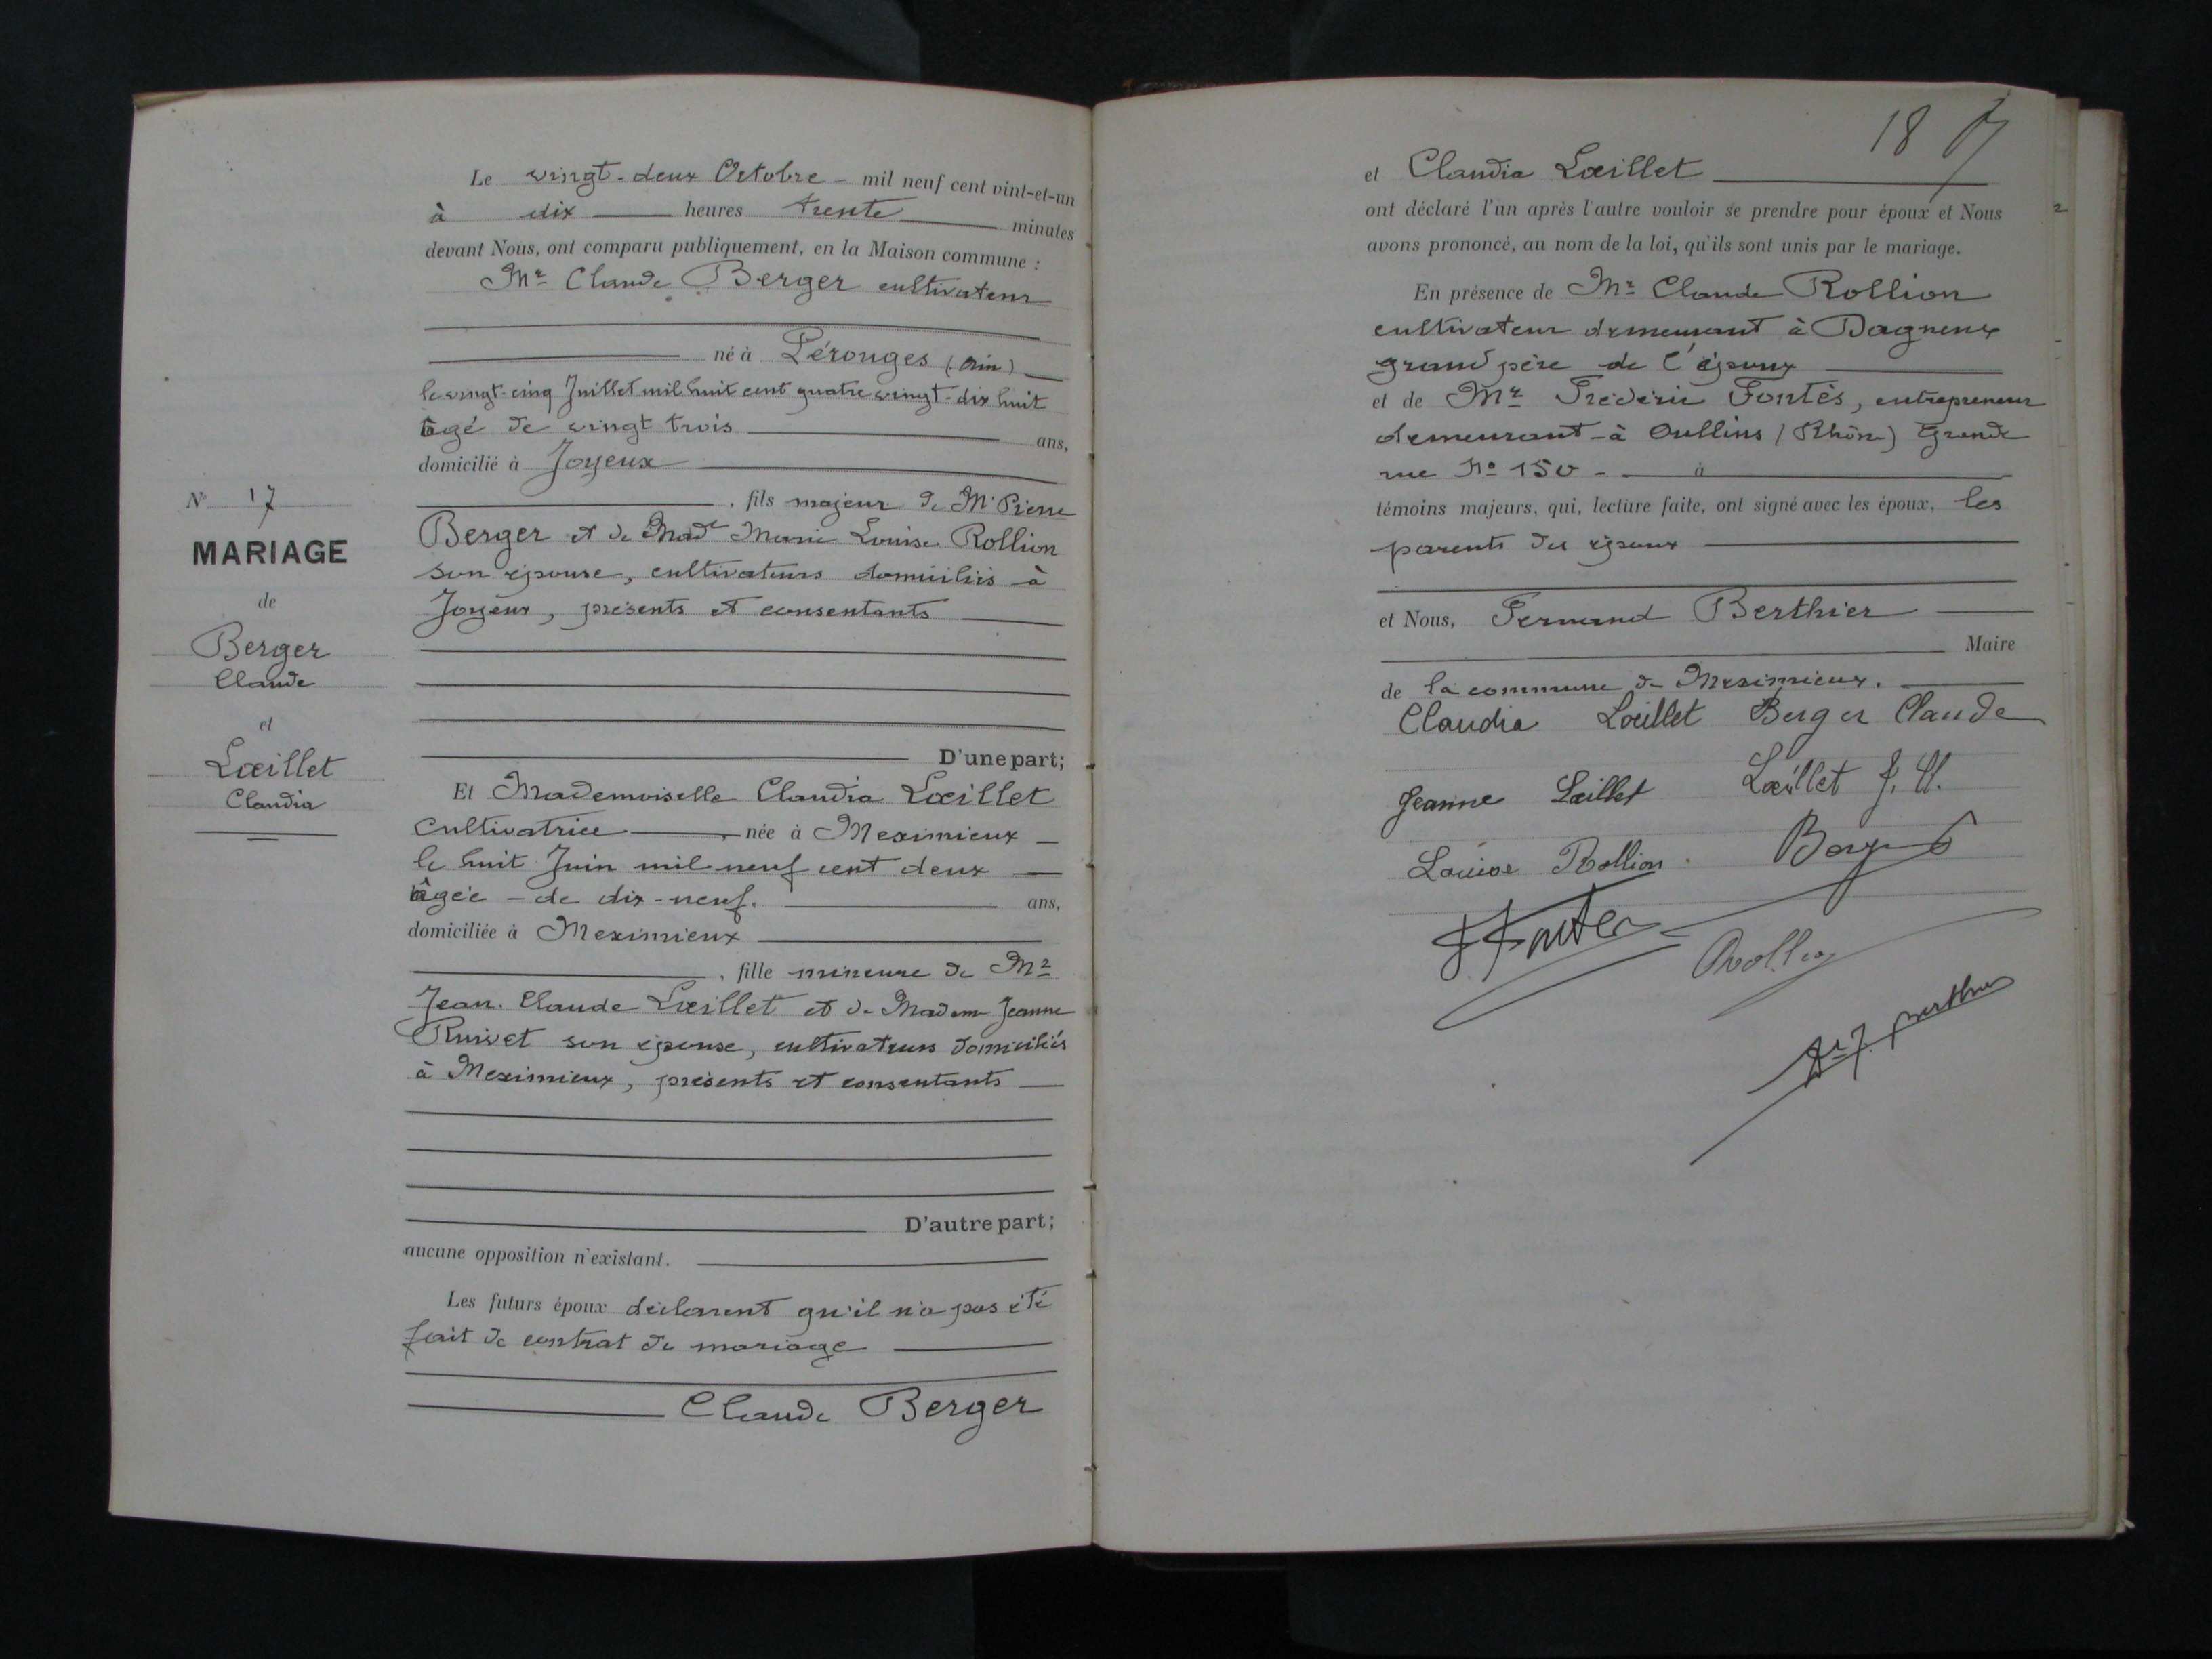 Le vingt-deux Octobre - mil neuf cent vint-et-un
à dix heures trente minutes
devant Nous, ont comparu publiquement, en la Maison commune :
Mr Claude Berger cultivateur
né à Pérouges (Ain)
le vingt-cinq Juillet mil huit cent quatre vingt-dix huit
âgé de vingt trois ans,
domicilié à Joyeux
, fils majeur de Mr Pierre
Berger et de Made Marie Louise Rollion
son épouse, cultivateurs domiciliés à
Joyeux, présents et consentants
D'une part;
N° 17
MARIAGE
de
Berger
Claude
et
Lœillet
Claudia
Et Mademoiselle Claudia Lœillet
cultivatrice, née à Meximieux
le huit Juin mil-neuf cent deux
âgée - de dix-neuf. ans,
domiciliée à Meximieux
, fille mineure de Mr
Jean. Claude Lœillet et de Madame Jeanne
Ruivet son épouse, cultivateurs domiciliés
à Meximieux, présents et consentants
D'autre part;
aucune opposition n'existant.
Les futurs époux déclarent qu'il n'a pas été
fait de contrat de mariage
Claude Berger
18
et Claudia Lœillet
ont déclaré l'un après l'autre vouloir se prendre pour époux et Nous
avons prononcé, au nom de la loi, qu'ils sont unis par le mariage.
En présence de Mr Claude Rollion
cultivateur demeurant à Dagneux
grand père de l'époux
et de Mr Frédéric Fontès, entrepreneur
demeurant - à Oullins (Rhône) Grande
rue No 150 - à
témoins majeurs, qui, lecture faite, ont signé avec les époux, les
parents des époux
et Nous, Fernand Berthier
Maire
de la commune de Meximieux.
Claudia Lœillet Berger Claude
Jeanne Lœillet Lœillet J. Cl.
Louise Rollion Berger
Rollion
Berthier